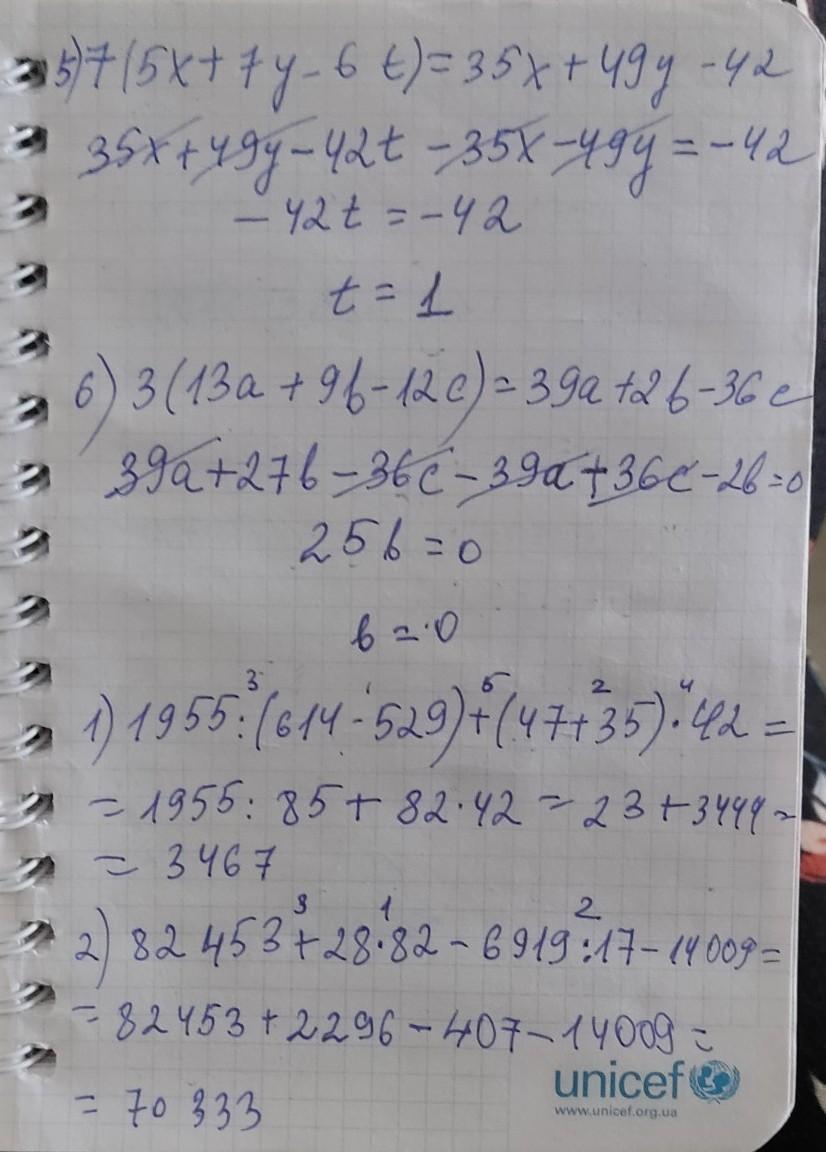 5) 7(5x + 7y - 6 t) = 35x + 49y - 42
35x + 49y - 42t - 35x - 49y = -42
- 42t = -42
t = 1
6) 3(13a + 9b - 12c) = 39a + 2b - 36c
39a + 27b - 36c - 39a + 36c - 2b = 0
25b = 0
b = 0
3 1 5 2 4
1) 1955 : (614 - 529) + (47 + 35) · 42 =
= 1955 : 85 + 82 · 42 = 23 + 3444 =
= 3467
3 1 2
2) 82 453 + 28 · 82 - 6919 : 17 - 14009 =
= 82453 + 2296 - 407 - 14009 =
= 70 333
unicef
www.unicef.org.ua